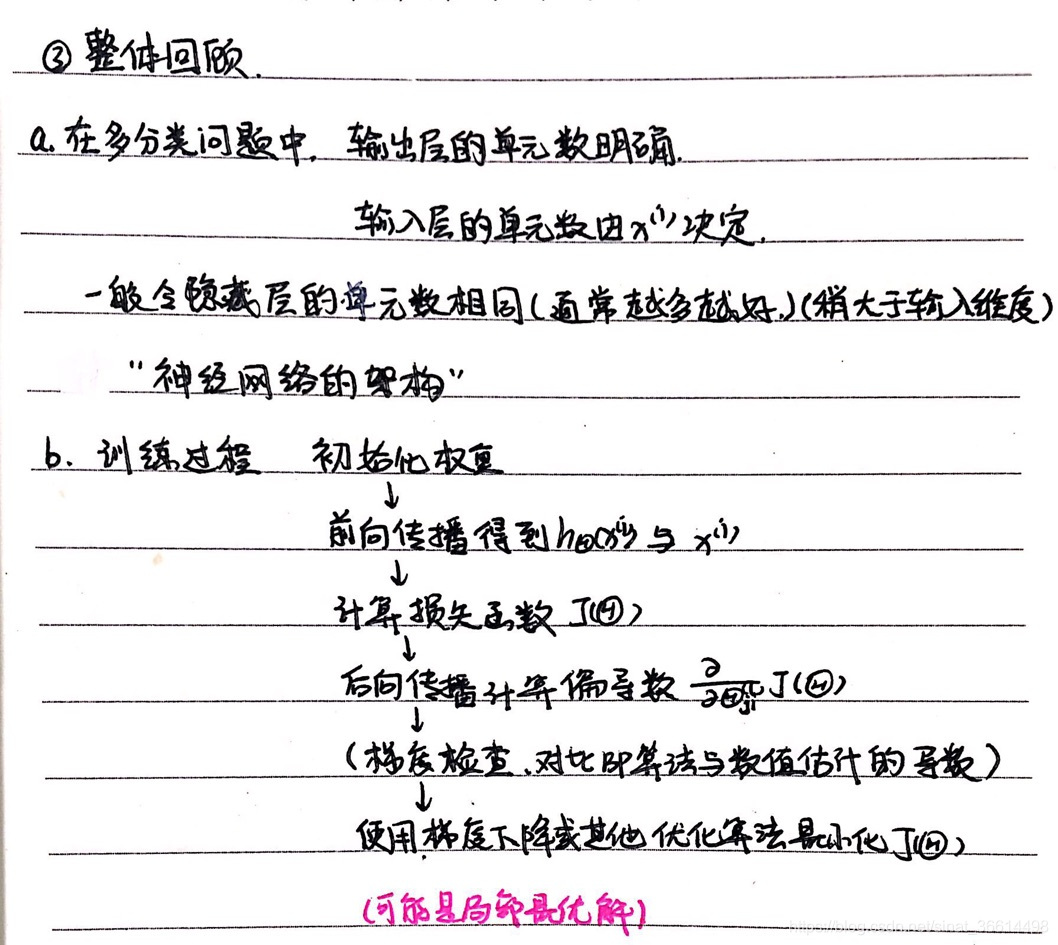 ③ 整体回顾.
a. 在多分类问题中, 输出层的单元数明确.
输入层的单元数由x⁽ⁱ⁾决定.
一般令隐藏层的单元数相同(通常越多越好.)(稍大于输入维度)
"神经网络的架构"
b. 训练过程 初始化权重
↓
前向传播得到hΘ(x⁽ⁱ⁾)与 x⁽ⁱ⁾
↓
计算损失函数 J(Θ)
↓
后向传播计算偏导数 ∂/∂Θⱼᵢ⁽ˡ⁾ J(Θ)
↓
(梯度检查,对比BP算法与数值估计的导数)
↓
使用梯度下降或其他优化算法最小化J(Θ)
(可能是局部最优解)